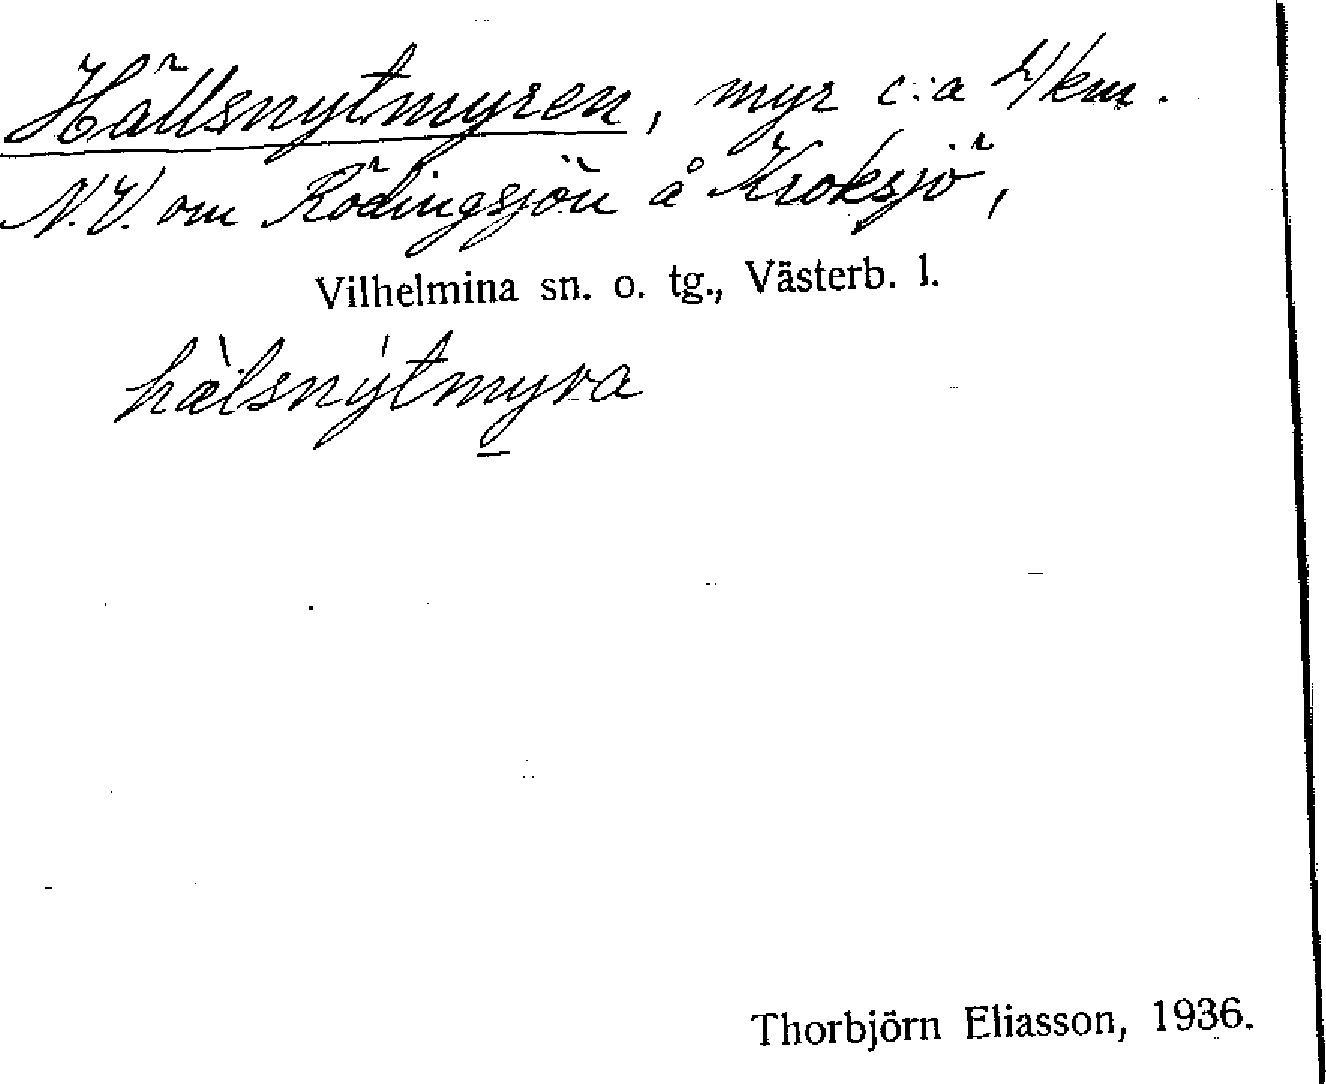 Hällsnytmyren, myr c:a 4 km.
N.V. om Rödingsjön å Kroksjö,
Vilhelmina sn. o. tg., Västerb. l.
hæ̀lsnýtmyra
Thorbjörn Eliasson, 1936.